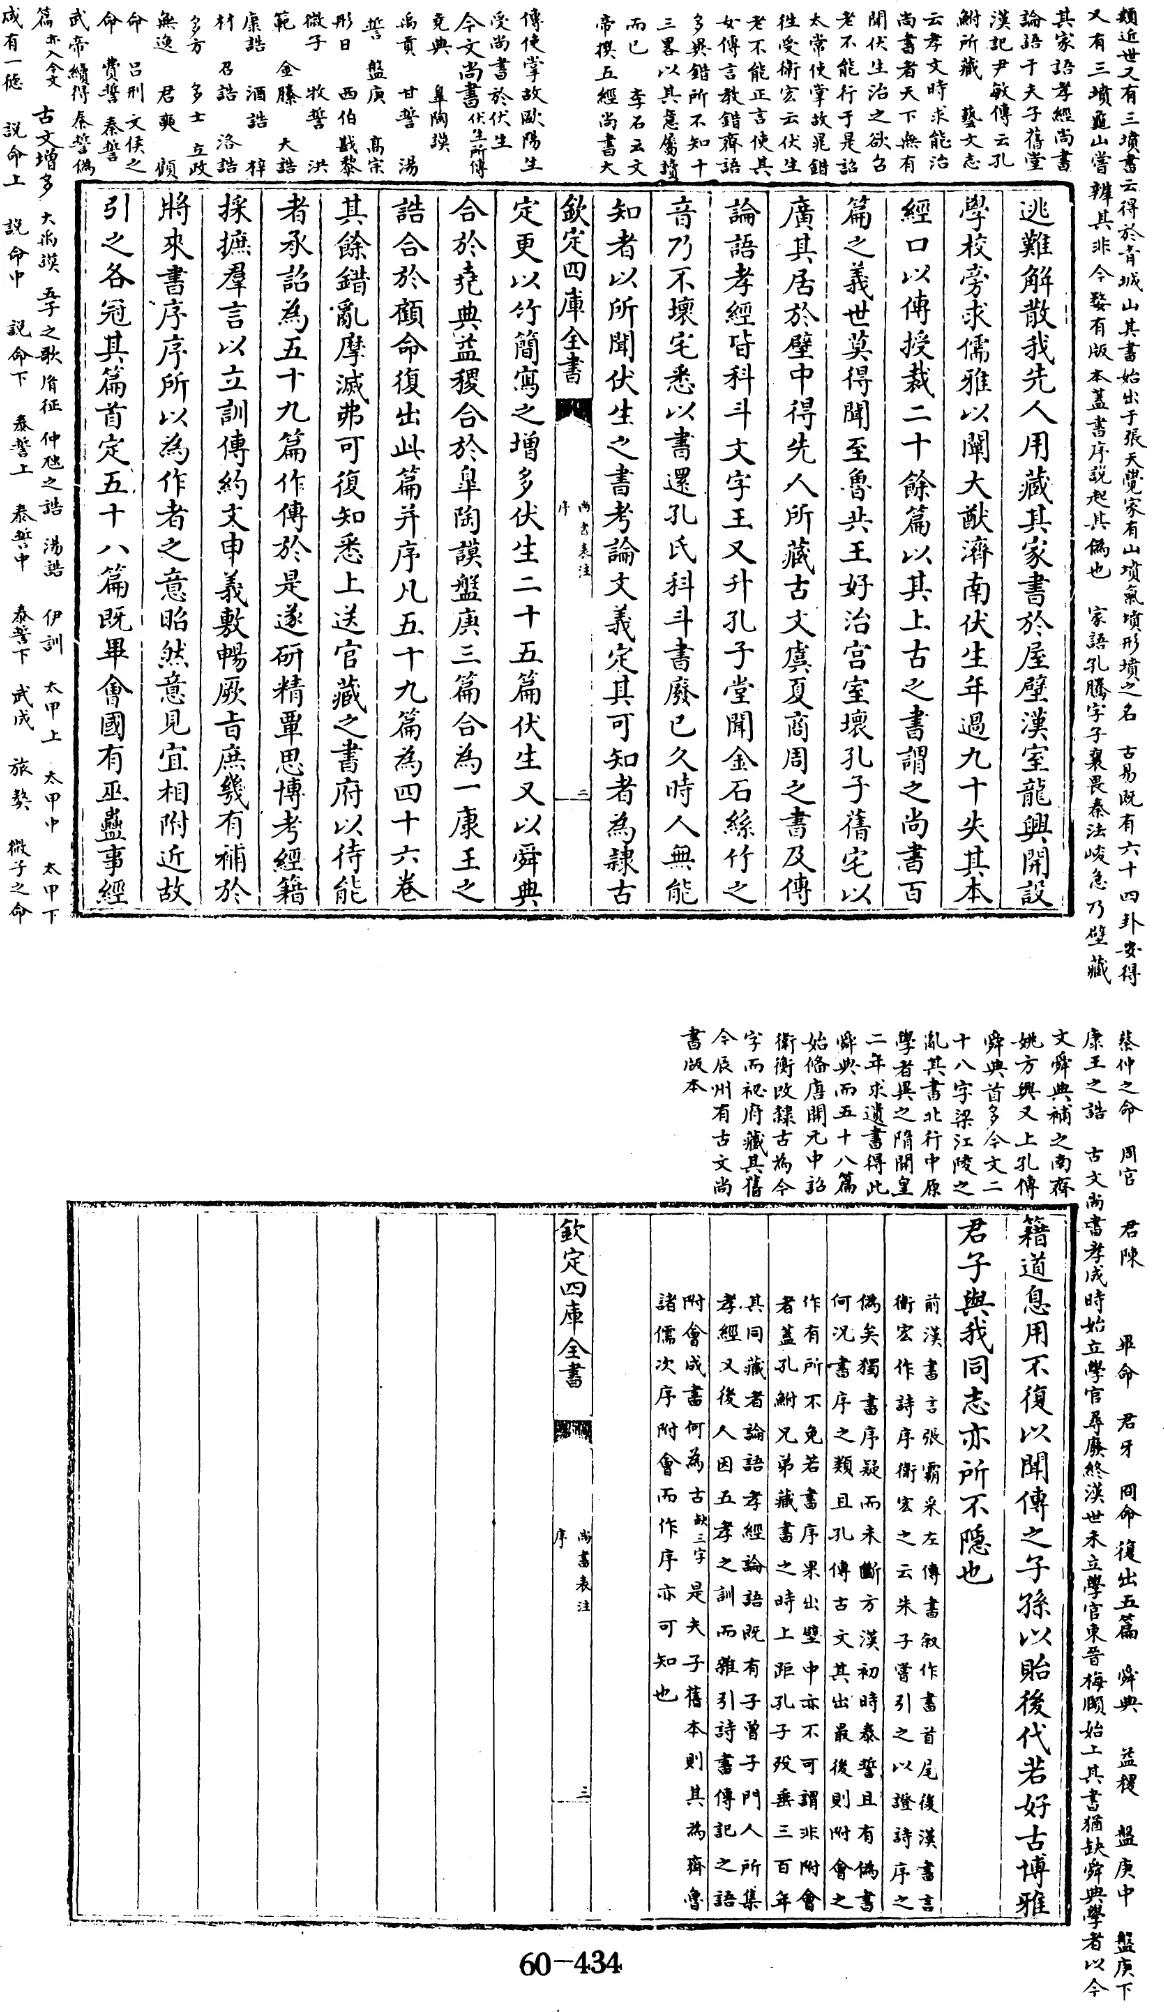 類近世又有三墳書云得於青城山其書始出于張天覺家有山墳氣墳形墳之名 古易既有六十四卦安得
又有三墳龜山嘗辨其非今婺有版本蓋書序説起其僞也 家語孔騰字子襄畏秦法峻急乃壁藏
其家語孝經尚書
論語于夫子舊堂
漢記尹敏傳云孔
鮒所藏 藝文志
云孝文時求能治
尚書者天下無有
聞伏生治之欲召
老不能行于是詔
太常使掌故晁錯
徃受衛宏云伏生
老不能正言使其
女傳言教錯齊語
多異錯所不知十
二三畧以其意屬讀
而已 李石云文
帝撰五經尚書大
傳使掌故歐陽生
受尚書於伏生
今文尚書伏生所傳
堯典 臯陶謨
禹貢 甘誓 湯
誓 盤庚 髙宗
肜日 西伯戡黎
微子 牧誓 洪
範 金縢 大誥
康誥 酒誥 梓
材 召誥 洛誥
多方 多士 立政
無逸 君奭 顧
命 吕刑 文侯之
命 費誓 秦誓
武帝續得泰誓偽
篇亦入今文 古文增多 大禹謨 五子之歌 胤征 仲虺之誥 湯誥 伊訓 太甲上 太甲中 太甲下
咸有一德 説命上 説命中 説命下 泰誓上 泰誓中 泰誓下 武成 旅獒 微子之命
逃難解散我先人用藏其家書於屋壁漢室龍興開設
學校旁求儒雅以闡大猷濟南伏生年過九十失其本
經口以傳授裁二十餘篇以其上古之書謂之尚書百
篇之義世莫得聞至魯共王好治宫室壞孔子舊宅以
廣其居於壁中得先人所藏古文虞夏商周之書及傳
論語孝經皆科斗文字王又升孔子堂聞金石絲竹之
音乃不壞宅悉以書還孔氏科斗書廢已久時人無能
知者以所聞伏生之書考論文義定其可知者為隸古
欽定四庫全書 尚書表注 序 二
定更以竹簡寫之增多伏生二十五篇伏生又以舜典
合於堯典益稷合於臯陶謨盤庚三篇合為一康王之
誥合於顧命復出此篇并序凡五十九篇為四十六卷
其餘錯亂摩滅弗可復知悉上送官藏之書府以待能
者承詔為五十九篇作傳於是遂研精覃思博考經籍
採摭羣言以立訓傳約文申義敷暢厥旨庶幾有補於
將來書序序所以為作者之意昭然意見宜相附近故
引之各冠其篇首定五十八篇既畢會國有巫蠱事經
蔡仲之命 周官 君陳 畢命 君牙 冏命 復出五篇 舜典 益稷 盤庚中 盤庚下
康王之誥 古文尚書孝成時始立學官尋廢終漢世未立學官東晉梅賾始上其書猶缺舜典學者以今
文舜典補之南齊
姚方興又上孔傳
舜典首多今文二
十八字梁江陵之
亂其書北行中原
學者異之隋開皇
二年求遺書得此
舜典而五十八篇
始備唐開元中詔
衛衡改隸古為今
字而祕府藏其舊
今辰州有古文尚
書版本
籍道息用不復以聞傳之子孫以貽後代若好古博雅
君子與我同志亦所不隱也
前漢書言張霸采左傳書叙作書首尾後漢書言
衛宏作詩序衛宏之云朱子嘗引之以證詩序之
偽矣獨書序疑而未斷方漢初時泰誓且有偽書
何况書序之類且孔傳古文其出最後則附會之
作有所不免若書序果出壁中亦不可謂非附會
者蓋孔鮒兄弟藏書之時上距孔子殁垂三百年
其同藏者論語孝經論語既有子曾子門人所集
孝經又後人因五孝之訓而雜引詩書傳記之語
附會成書何為古缺三字是夫子舊本則其為齊魯
諸儒次序附會而作序亦可知也
欽定四庫全書 尚書表注 序 三
60-434